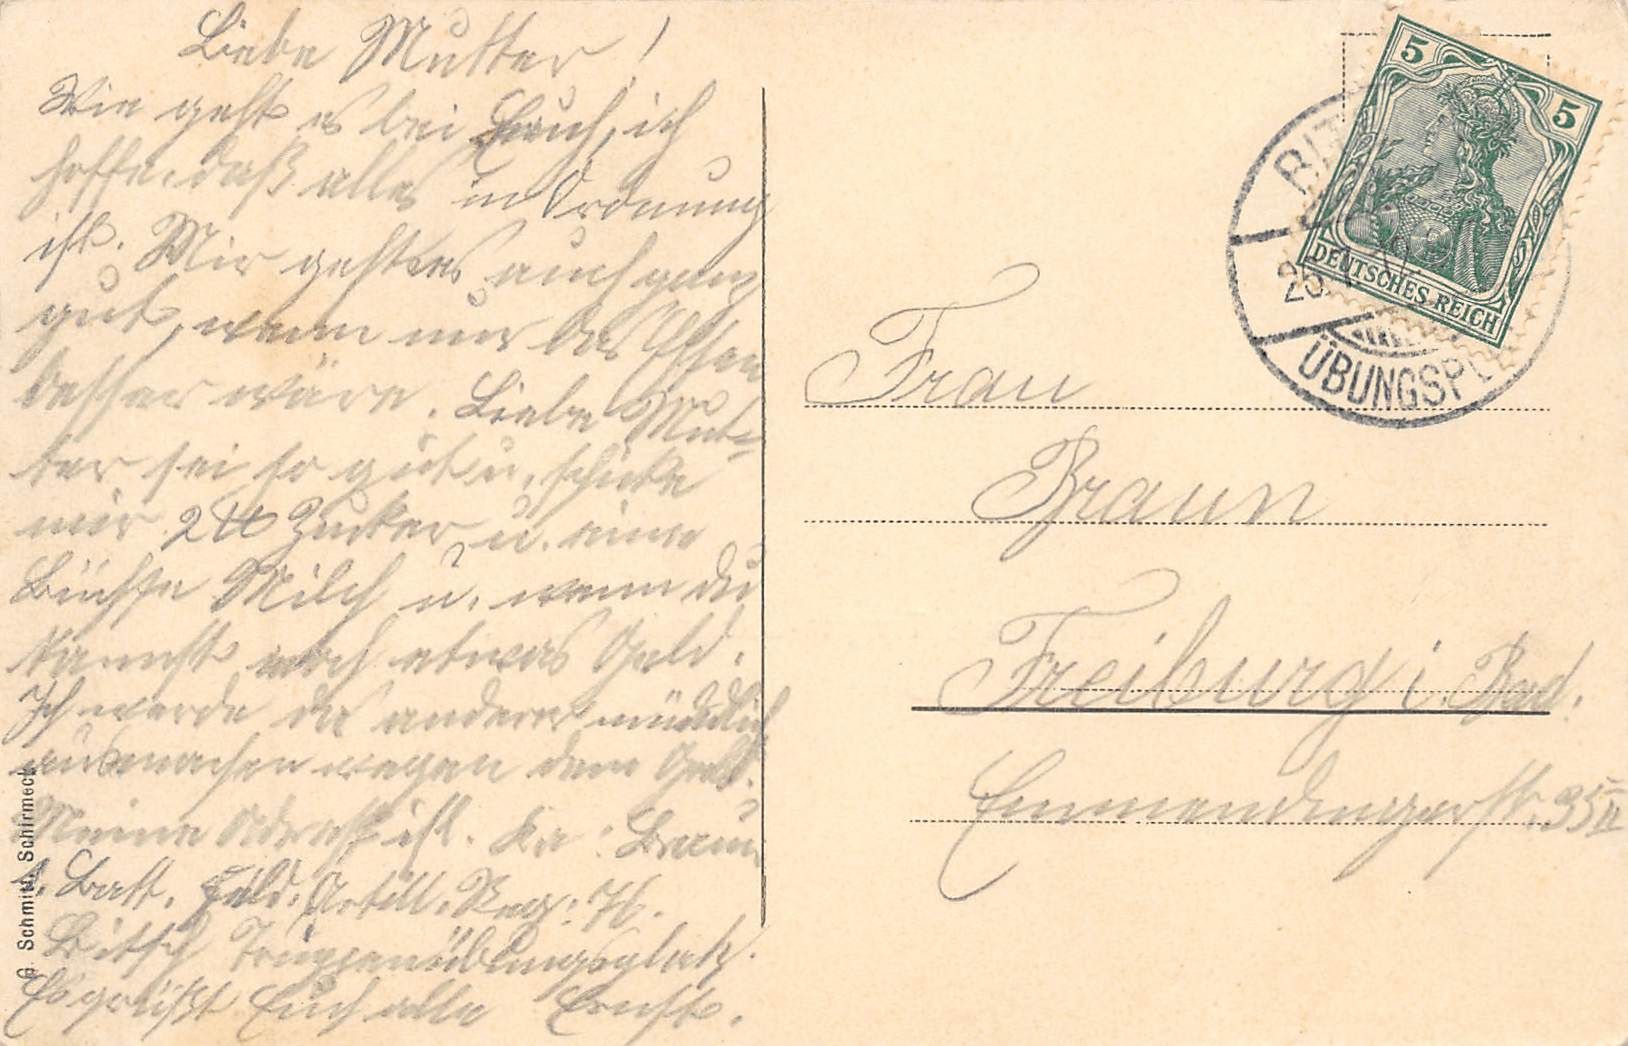 Liebe Mutter!
Wie geht es bei Euch, ich
hoffe, daß alles in Ordnung
ist. Mir geht es auch ganz
gut, wenn nur das Essen
besser wäre. Liebe Mut=
ter sei so gut u. schicke
mir 2 ℔ Zucker u. eine
Büchse Milch u. wenn du
kannst noch etwas Geld.
Ich werde das andere mündlich
ausmachen wegen dem Geld.
Meine Adresse ist. Ka: Braun
1. Batt. Feld. Artill. Reg: 76.
Bitsch Truppenübungsplatz.
Es grüßt Euch alle Ernst.
G. Schmitt, Schirmeck
5 5
DEUTSCHES REICH
BIT
ÜBUNGSPL
Frau
Braun
Freiburg i. Bad.
Emmendingerstr. 35 II